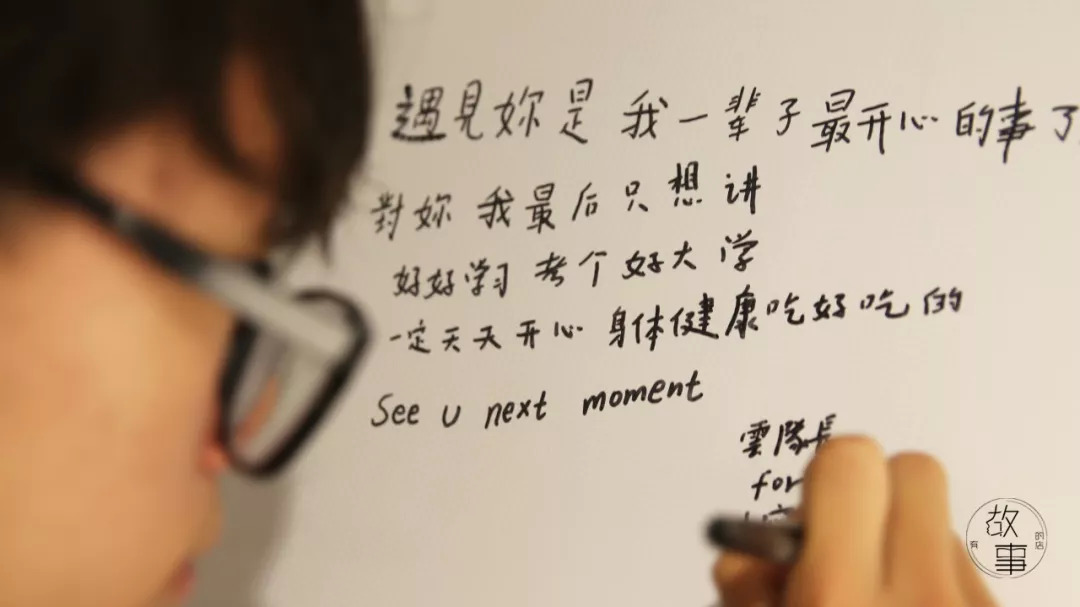 遇見妳是 我一辈子最开心的事了
對妳 我最后只想讲
好好学习 考个好大学
一定天天开心 身体健康吃好吃的
See u next moment
雲隊長
for
有故事的店